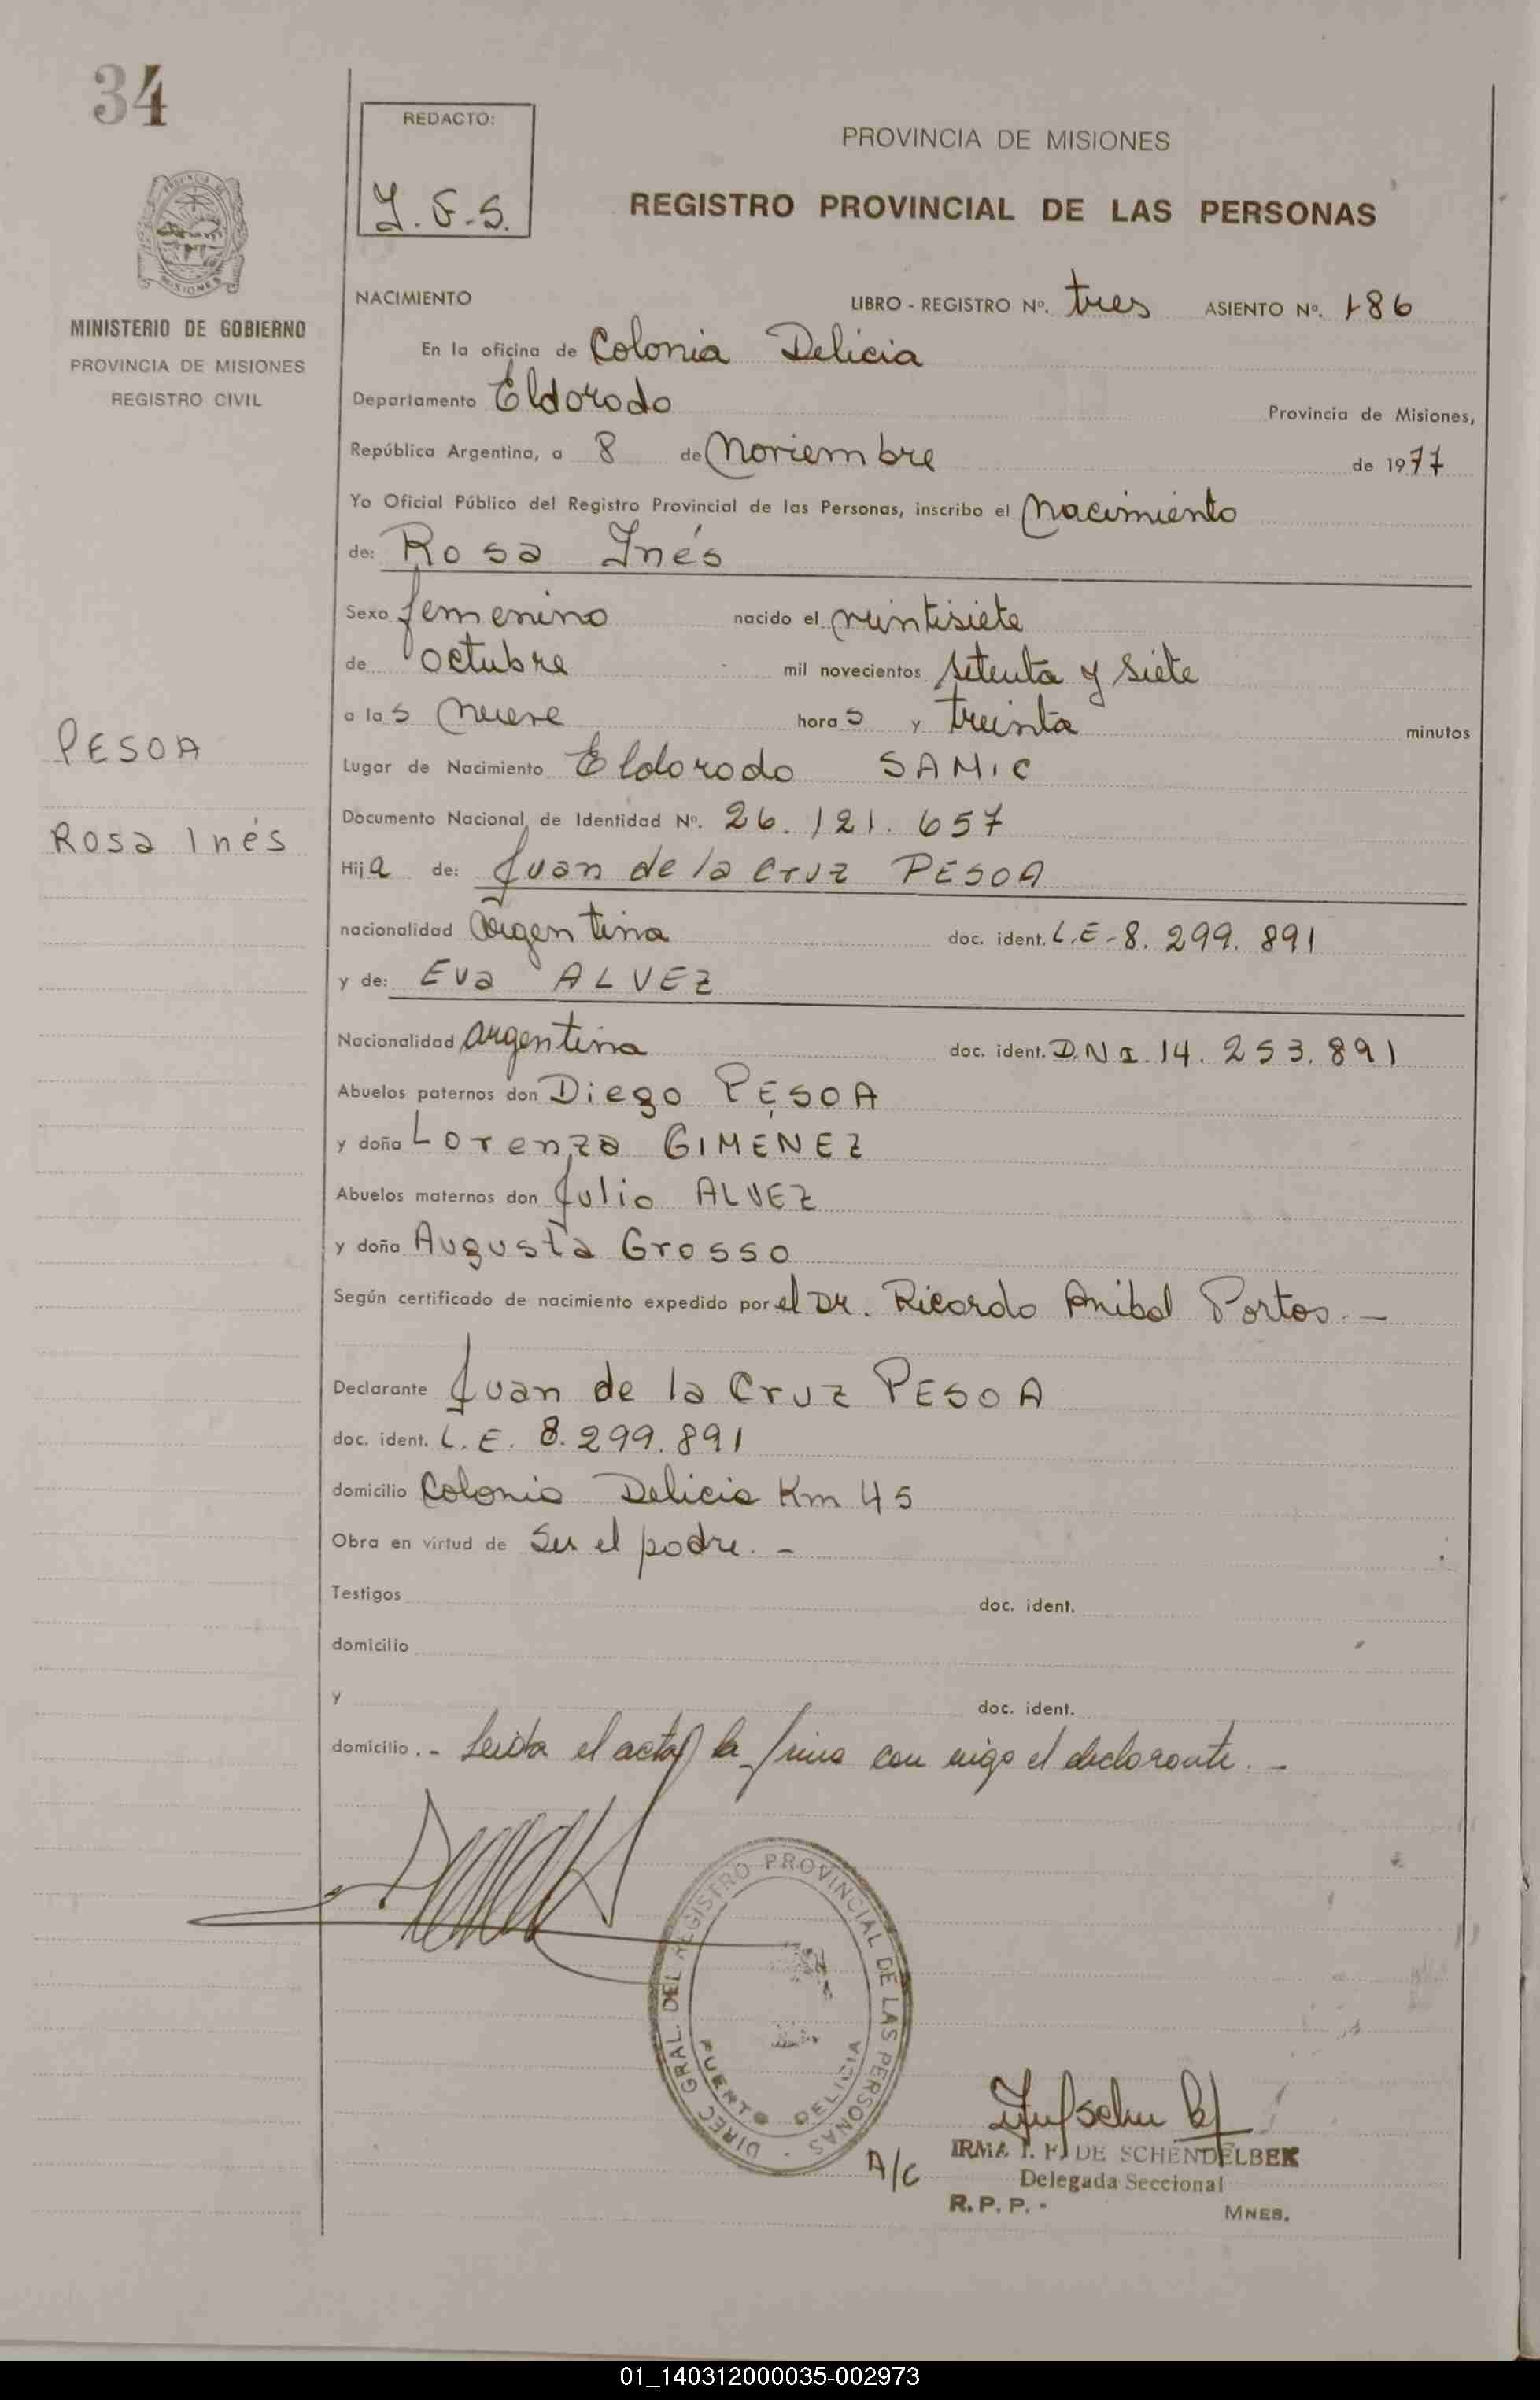 34
REDACTO:
Y. F. S.
PROVINCIA DE MISIONES
REGISTRO PROVINCIAL DE LAS PERSONAS
MISIONES
MINISTERIO DE GOBIERNO
PROVINCIA DE MISIONES
REGISTRO CIVIL
NACIMIENTO LIBRO - REGISTRO Nº. tres ASIENTO Nº. 186
En la oficina de Colonia Delicia
Departamento Eldorado Provincia de Misiones,
República Argentina, a 8 de Noviembre de 1977
Yo Oficial Público del Registro Provincial de las Personas, inscribo el Nacimiento
de: Rosa Inés
Sexo femenino nacido el veintisiete
de octubre mil novecientos setenta y siete
a las nueve horas y treinta minutos
PESOA
Lugar de Nacimiento Eldorado SAMIC
Documento Nacional de Identidad Nº. 26.121.657
Rosa Inés
Hija de: Juan de la Cruz PESOA
nacionalidad Argentina doc. ident. L.E-8.299.891
y de: Eva ALVEZ
Nacionalidad argentina doc. ident. D.N I. 14.253.891
Abuelos paternos don Diego PESOA
y doña Lorenza GIMENEZ
Abuelos maternos don Julio ALVEZ
y doña Augusta Grosso
Según certificado de nacimiento expedido por el Dr. Ricardo Anibal Portos.-
Declarante Juan de la Cruz PESOA
doc. ident. L.E. 8.299.891
domicilio Colonia Delicia Km 45
Obra en virtud de Ser el padre.-
Testigos doc. ident.
domicilio
y doc. ident.
domicilio .- Leida el acta la firma con migo el declarante.-
DIREC GRAL. DEL REGISTRO PROVINCIAL DE LAS PERSONAS -
PUERTO DELICIA
A/C
IRMA I. F. DE SCHENDELBEK
Delegada Seccional
R.P.P.- MNES.
01_140312000035-002973